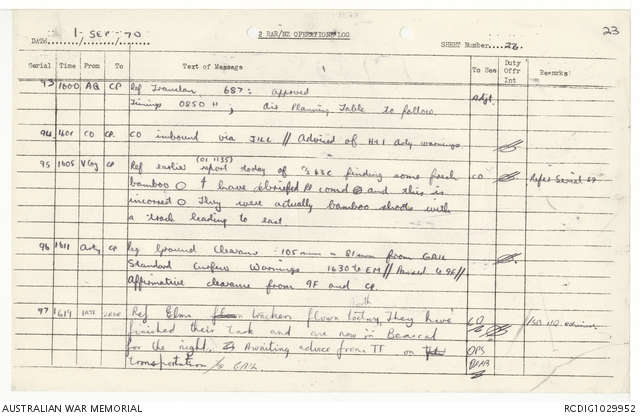 23
1 - SEP - 70
2 RAR/NZ OPERATIONS LOG
DATE
SHEET Number 26
Serial Time From To Text of Message To See Duty Offr Int Remarks
93 1600 AQ CP Ref Transclan 687: approved Adjt.
Timings 0850 H; Air Planning Table to follow.
94 1601 CO CP. CO inbound via JILL // Advised of H&I Arty warnings
95 1605 V Coy CP Ref earlier (01 1135) report today of 3 Sec finding some fresh CO Refer Serial 59
bamboo O I have debriefed Pl comd and this is
incorrect O They were actually bamboo shoots with
a track leading to east.
96 1611 Arty CP Req Ground Clearance 105mm & 81mm from GAIL
Standard Curfew Warnings 1630 to EM // Passed to 9F //
Affirmative clearance from 9F and CP.
97 1614 Ref Elms trackers flown today, They have LO
finished their task and are now in Bearcat
for the night. Awaiting advice from TF on OPS
transportation to GAIL
AUSTRALIAN WAR MEMORIAL
RCDIG1029952